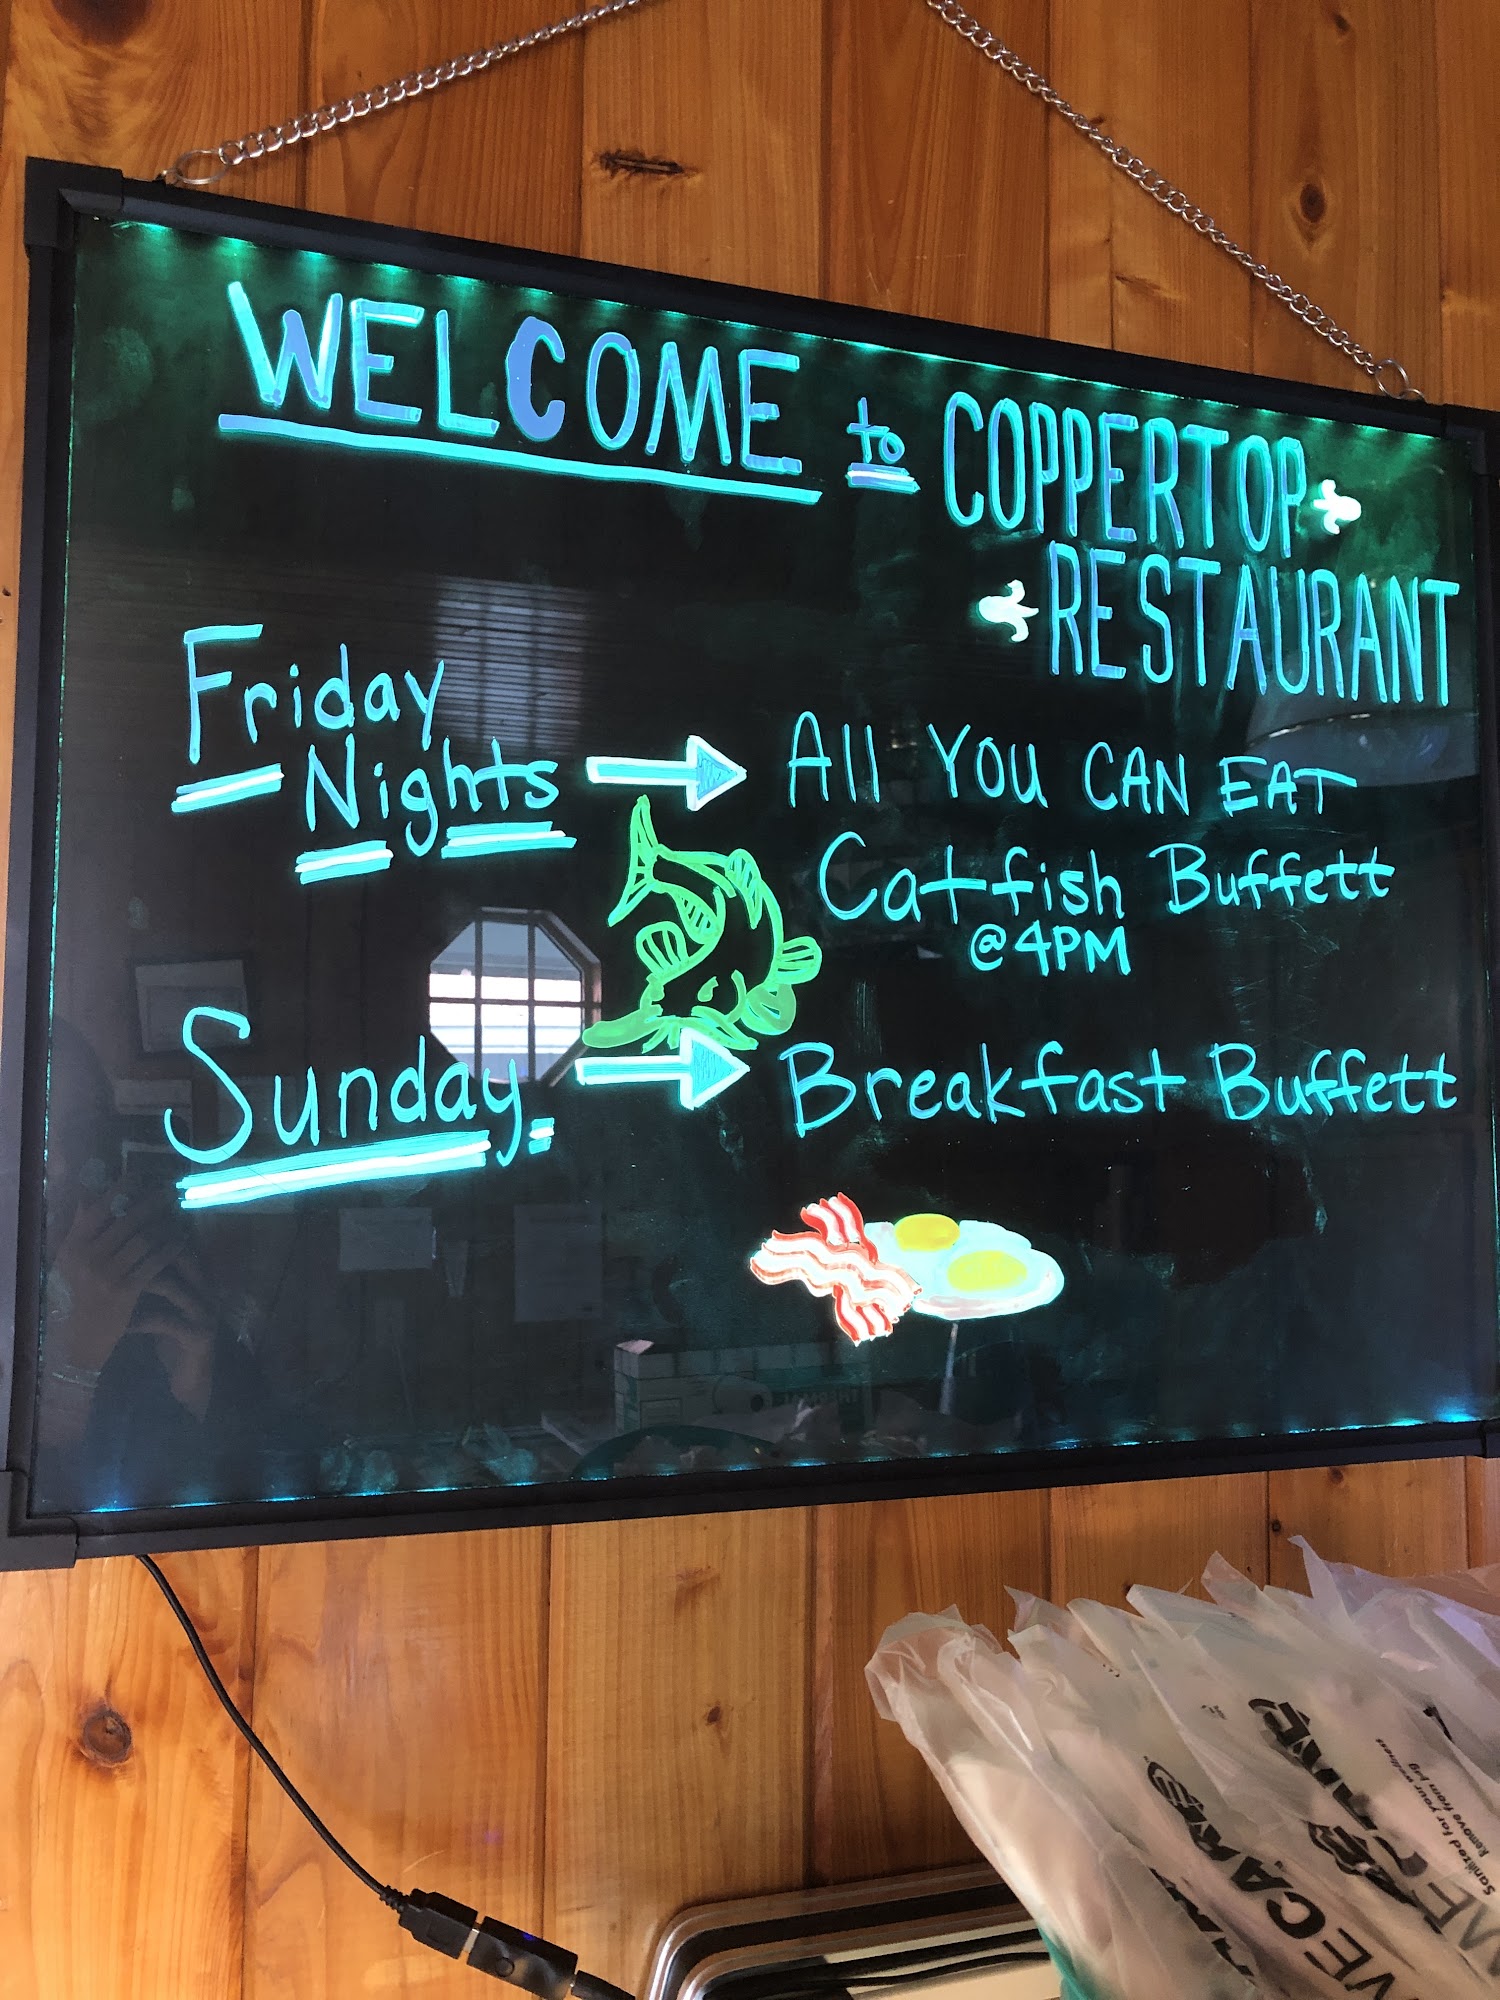 WELCOME to COPPERTOP
RESTAURANT
Friday
Nights
All YOU CAN EAT
Catfish Buffett
@4PM
Sunday
Breakfast Buffett
WE CARE
Sanitized for your wellness
Remove from jug